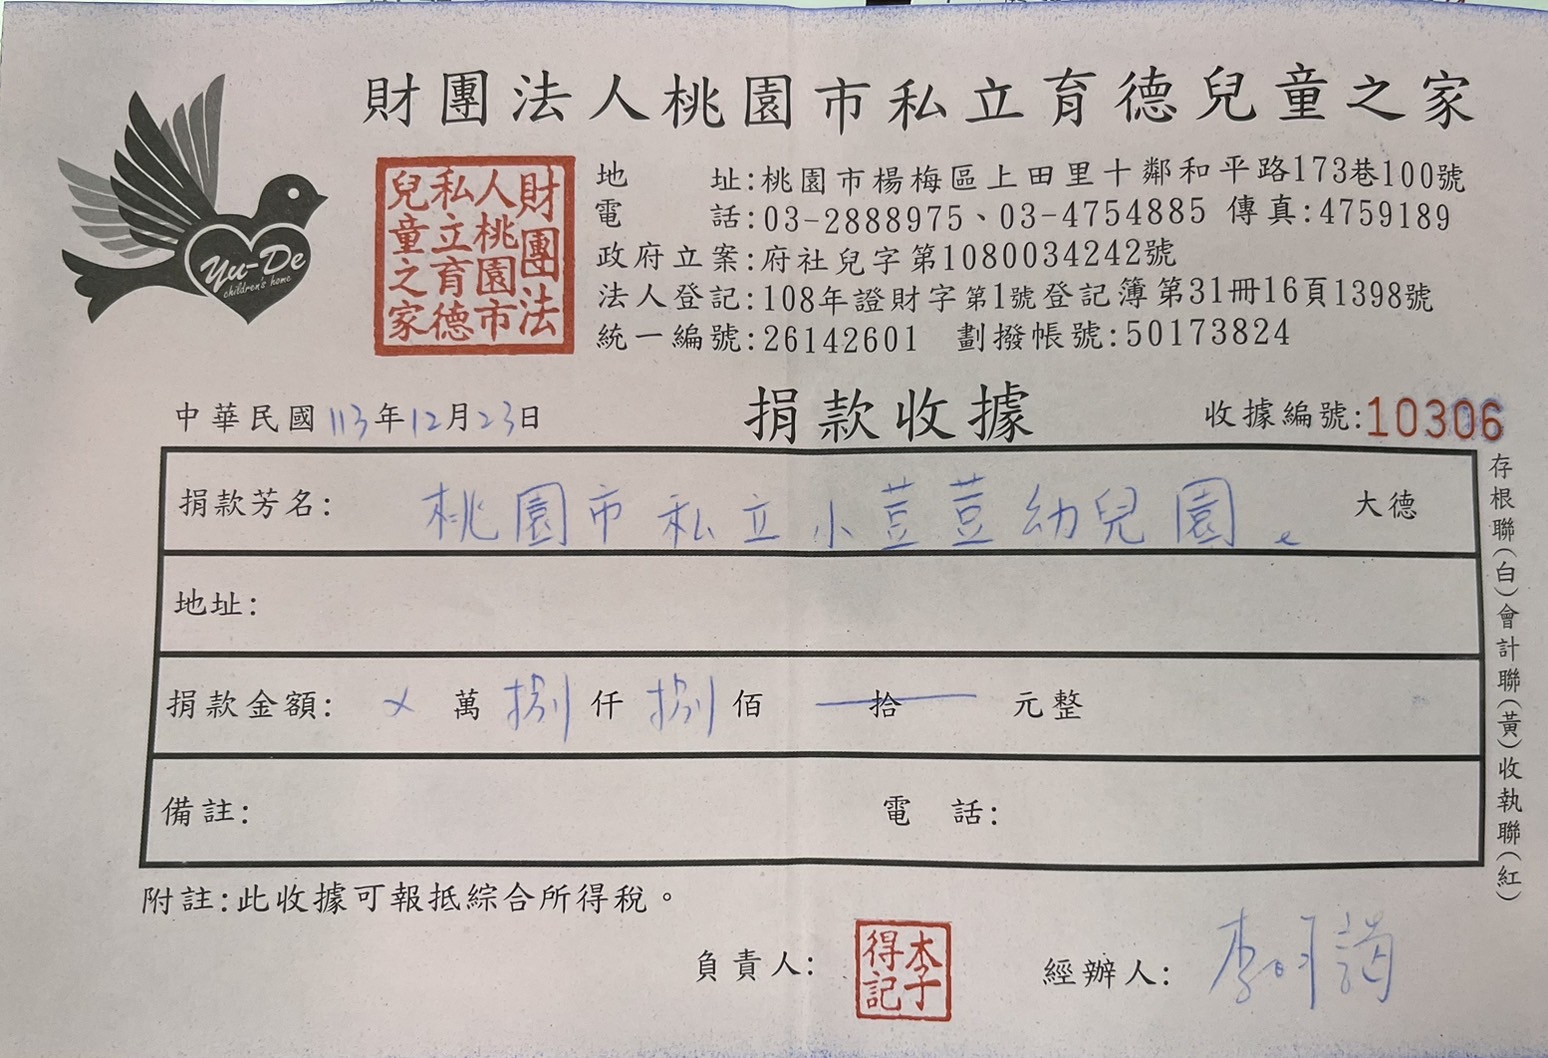 財團法人桃園市私立育德兒童之家
Yu-De
children's home
財團法人桃園市私立育德兒童之家
地 址:桃園市楊梅區上田里十鄰和平路173巷100號
電 話:03-2888975、03-4754885 傳真:4759189
政府立案:府社兒字第1080034242號
法人登記:108年證財字第1號登記簿第31冊16頁1398號
統一編號:26142601 劃撥帳號:50173824
捐款收據
中華民國113年12月23日
收據編號:10306
捐款芳名: 桃園市私立小荳荳幼兒園。 大德
地址:
捐款金額: ㄨ 萬 捌 仟 捌 佰 拾 元整
備註: 電 話:
存根聯(白)會計聯(黃)收執聯(紅)
附註:此收據可報抵綜合所得稅。
負責人: 李子得記 經辦人: 李明